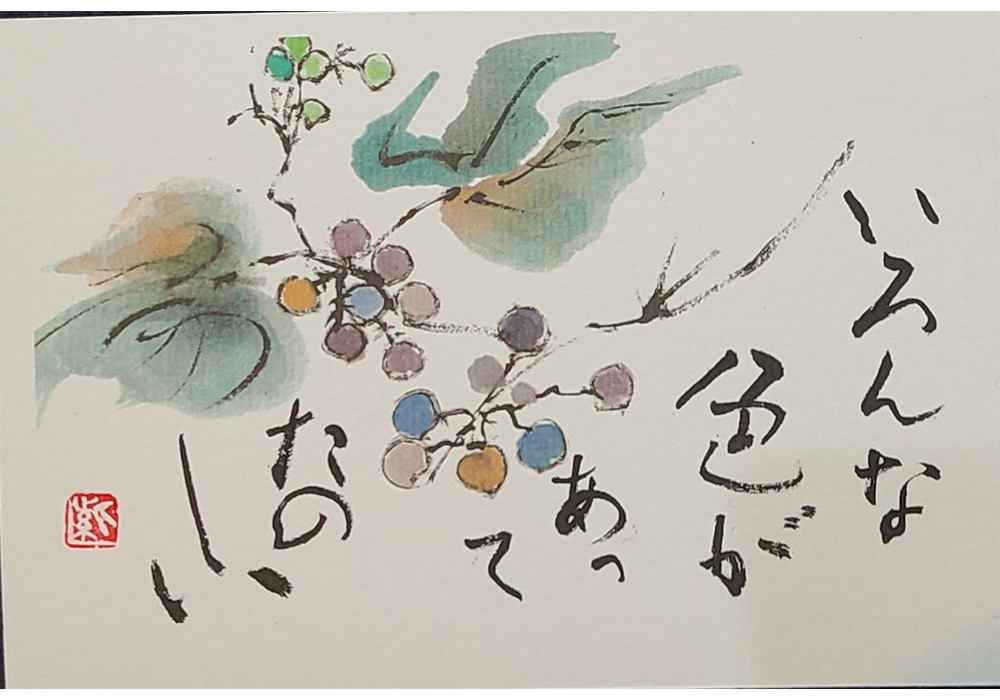 いろんな
色が
あっ
て
たの
しい